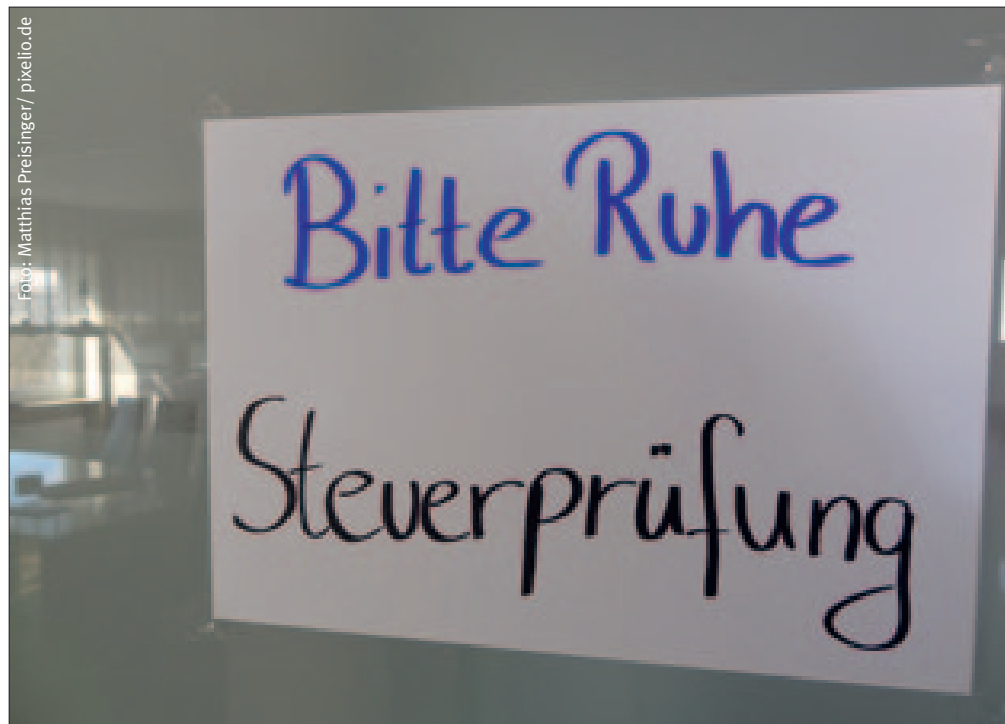 Foto: Matthias Preisinger/ pixelio.de
Bitte Ruhe
Steuerprüfung